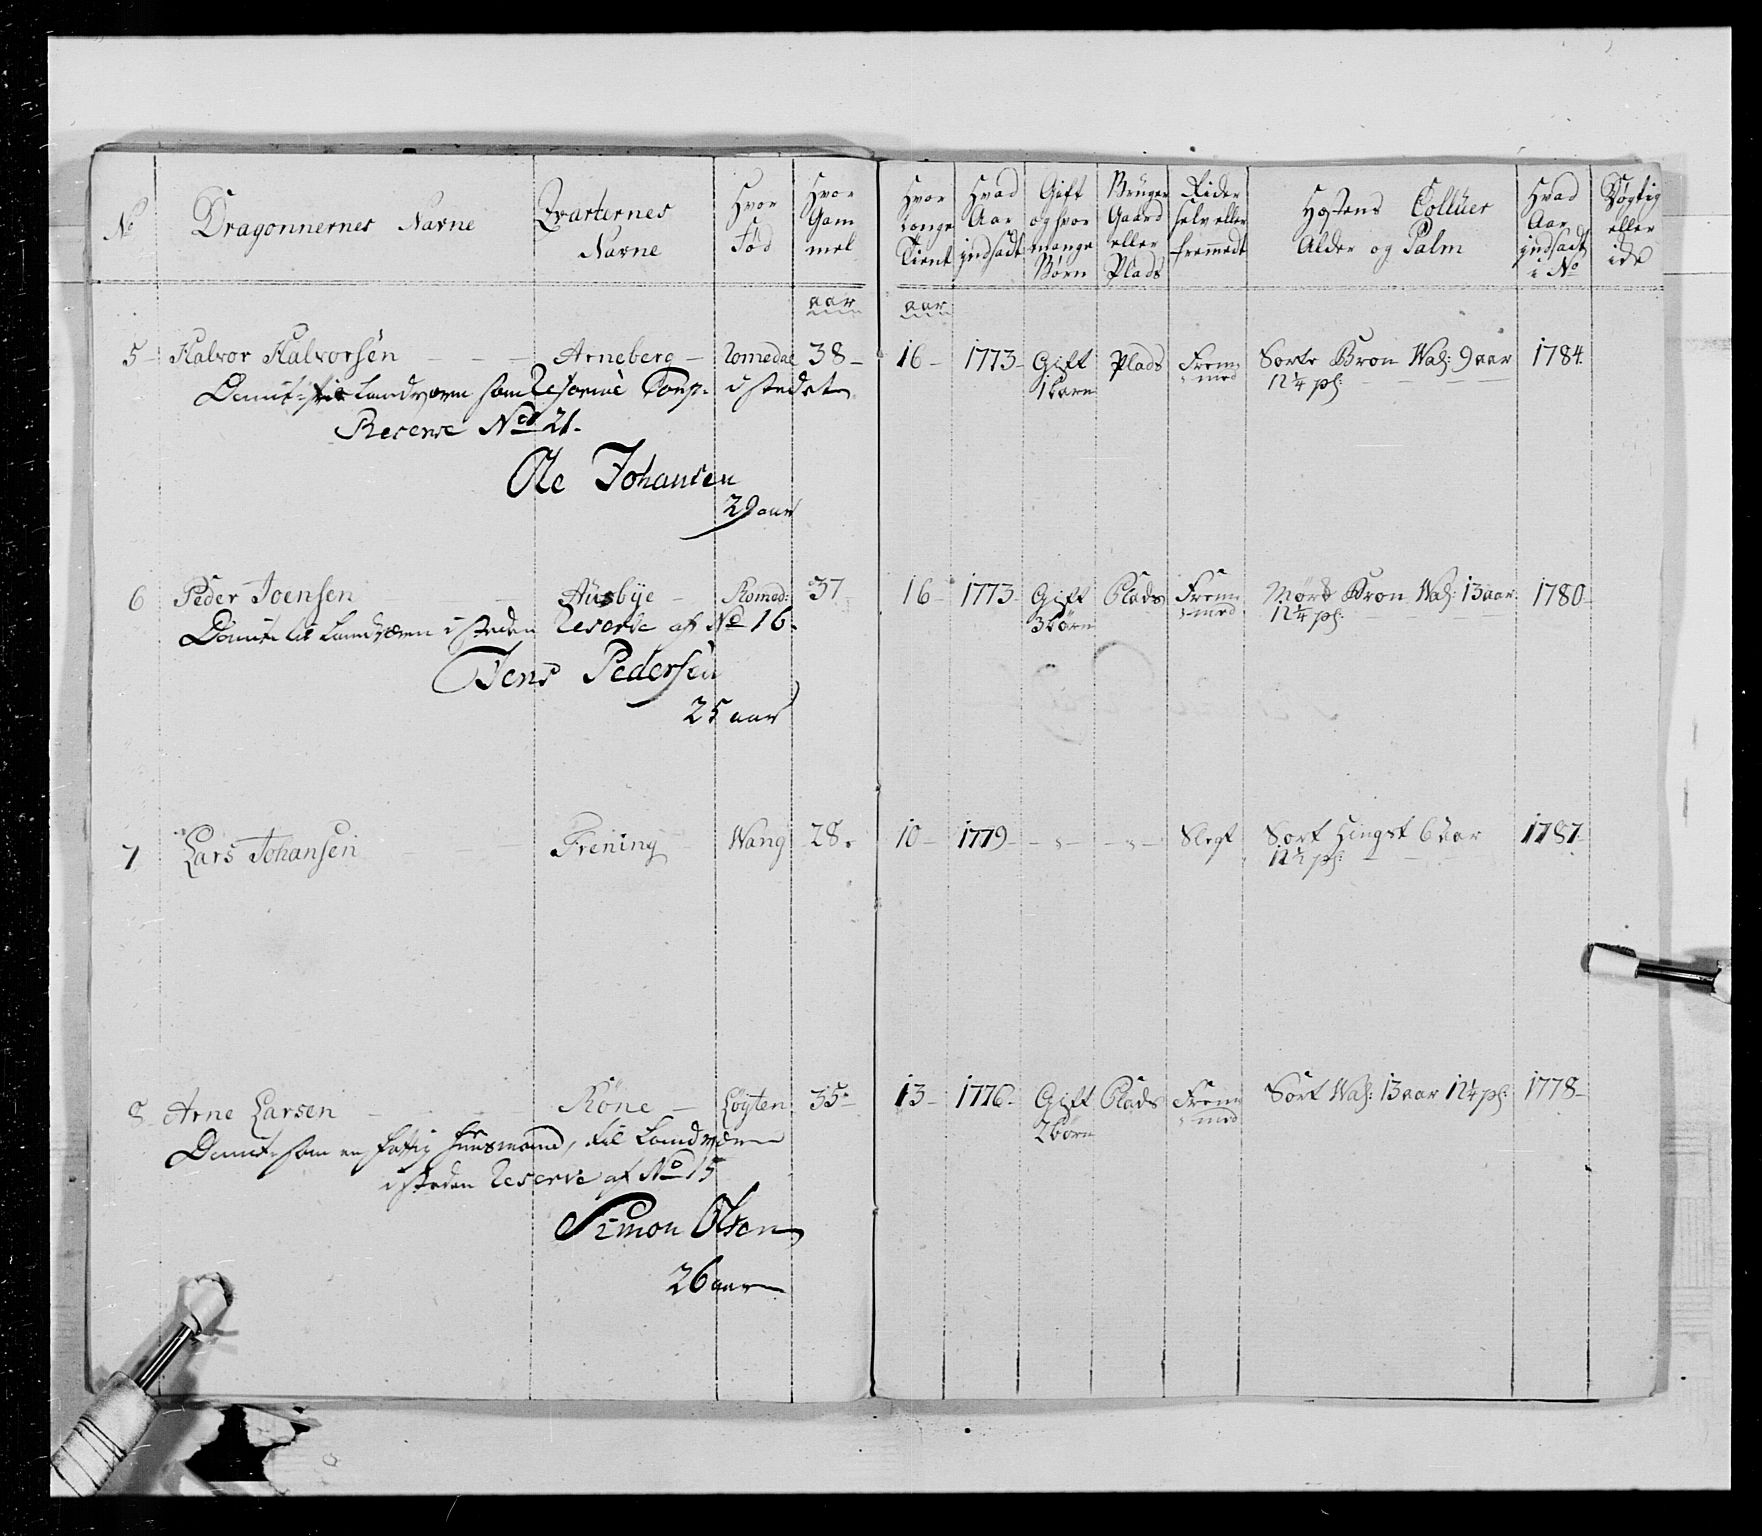 No Dragonnernes Navne Qvarternes Navne Hvor Fød Hvor Gam mel Hvor Længe Tient Hvad Aar indsadt Gift og hvor mange Børn Brüger Gaard eller Plads Rider selv eller fremmedt Hæstens Collüer Alder og Palm Hvad Aar indsadt i No Døgtig eller icke
aar aar
5 Halvor Halvorsen Arneberg Romedal 38 16 1773 Gift 1 barn Plads Frem-med Sorte Bron Wal: 9 aar 12¼ pl: 1784
Demit: til Landværn som Comp. i stedet
Reserve No 21.
Ole Johansen
29 aar
6 Peder Joensen Aüsbye Romed: 37 16 1773 Gift 3 börn Plads Frem-med Mørk Bron Wal: 13 aar 12¼ pl: 1780
Demit: til Landværn i steden Reserve af No 16.
Jens Pedersen
25 aar
7 Lars Johansen Frening Wang 28 10 1779 Slegt Sort Hingst 6 aar 12½ pl: 1787
8 Arne Larsen Röne Løyten 35 13 1776 Gift 2 börn Plads Frem-med Sort Wal: 13 aar 12¼ pl: 1778
Demit: som en fattig huusmand, til Landværn
i steden Reserve af No 15
Simon Olsen
26 aar